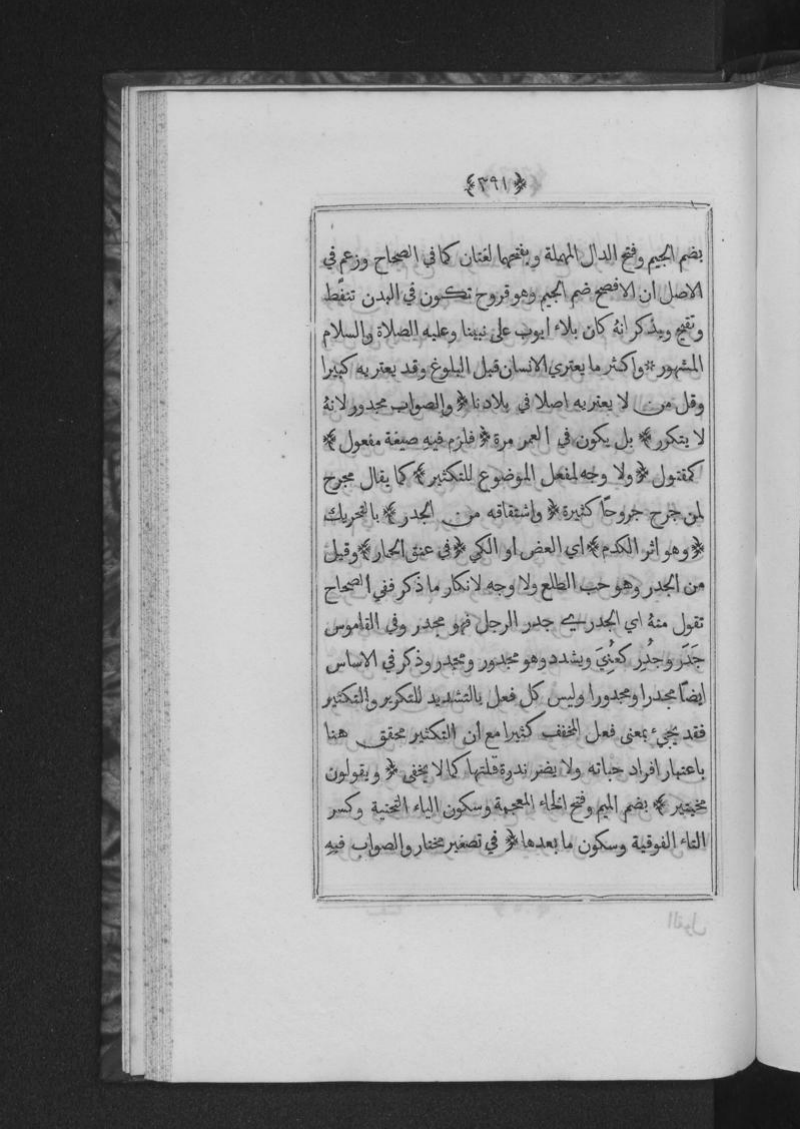 ﴿٣٩١﴾
بضم الجيم وفتح الدال المهملة وبفتحهما لغتان كما في الصحاح وزعم في
الاصل ان الافصح ضم الجيم وهو قروح تكون في البدن تنفّط
وتقيح ويذكر انهُ كان بلاء ايوب على نبينا وعليه الصلاة والسلام
المشهور * واكثر ما يعتري الانسان قبل البلوغ وقد يعتريه كبيرا
وقل من لا يعتريه اصلا في بلادنا ﴿ والصواب مجدور لانهُ
لا يتكرر ﴾ بل يكون في العمر مرة ﴿ فلزم فيهِ صيغة مفعول ﴾
كمقتول ﴿ ولا وجه لمفعل الموضوع للتكثير ﴾ كما يقال مجرح
لمن جرح جروحًا كثيرة ﴿ واشتقاقه من الجدر ﴾ بالتحريك
﴿ وهو اثر الكدم ﴾ اي العض او الكي ﴿ في عنق الحمار ﴾ وقيل
من الجدر وهو حب الطلع ولا وجه لانكار ما ذكر ففي الصحاح
تقول منهُ اي الجدري جدر الرجل فهو مجدر وفي القاموس
جَدَر وجُدِر كعُنِيَ ويشدد وهو مجدور ومجدر وذكر في الاساس
ايضًا مجدرا ومجدورا وليس كل فعل بالتشديد للتكرير والتكثير
فقد يجيء بمعنى فعل المخفف كثيرا مع ان التكثير محقق هنا
باعتبار افراد حباته ولا يضر ندرة قلتها كما لا يخفى ﴿ ويقولون
مخيتير ﴾ بضم الميم وفتح الخاء المعجمة وسكون الياء التحتية وكسر
التاء الفوقية وسكون ما بعدها ﴿ في تصغير مختار والصواب فيهِ